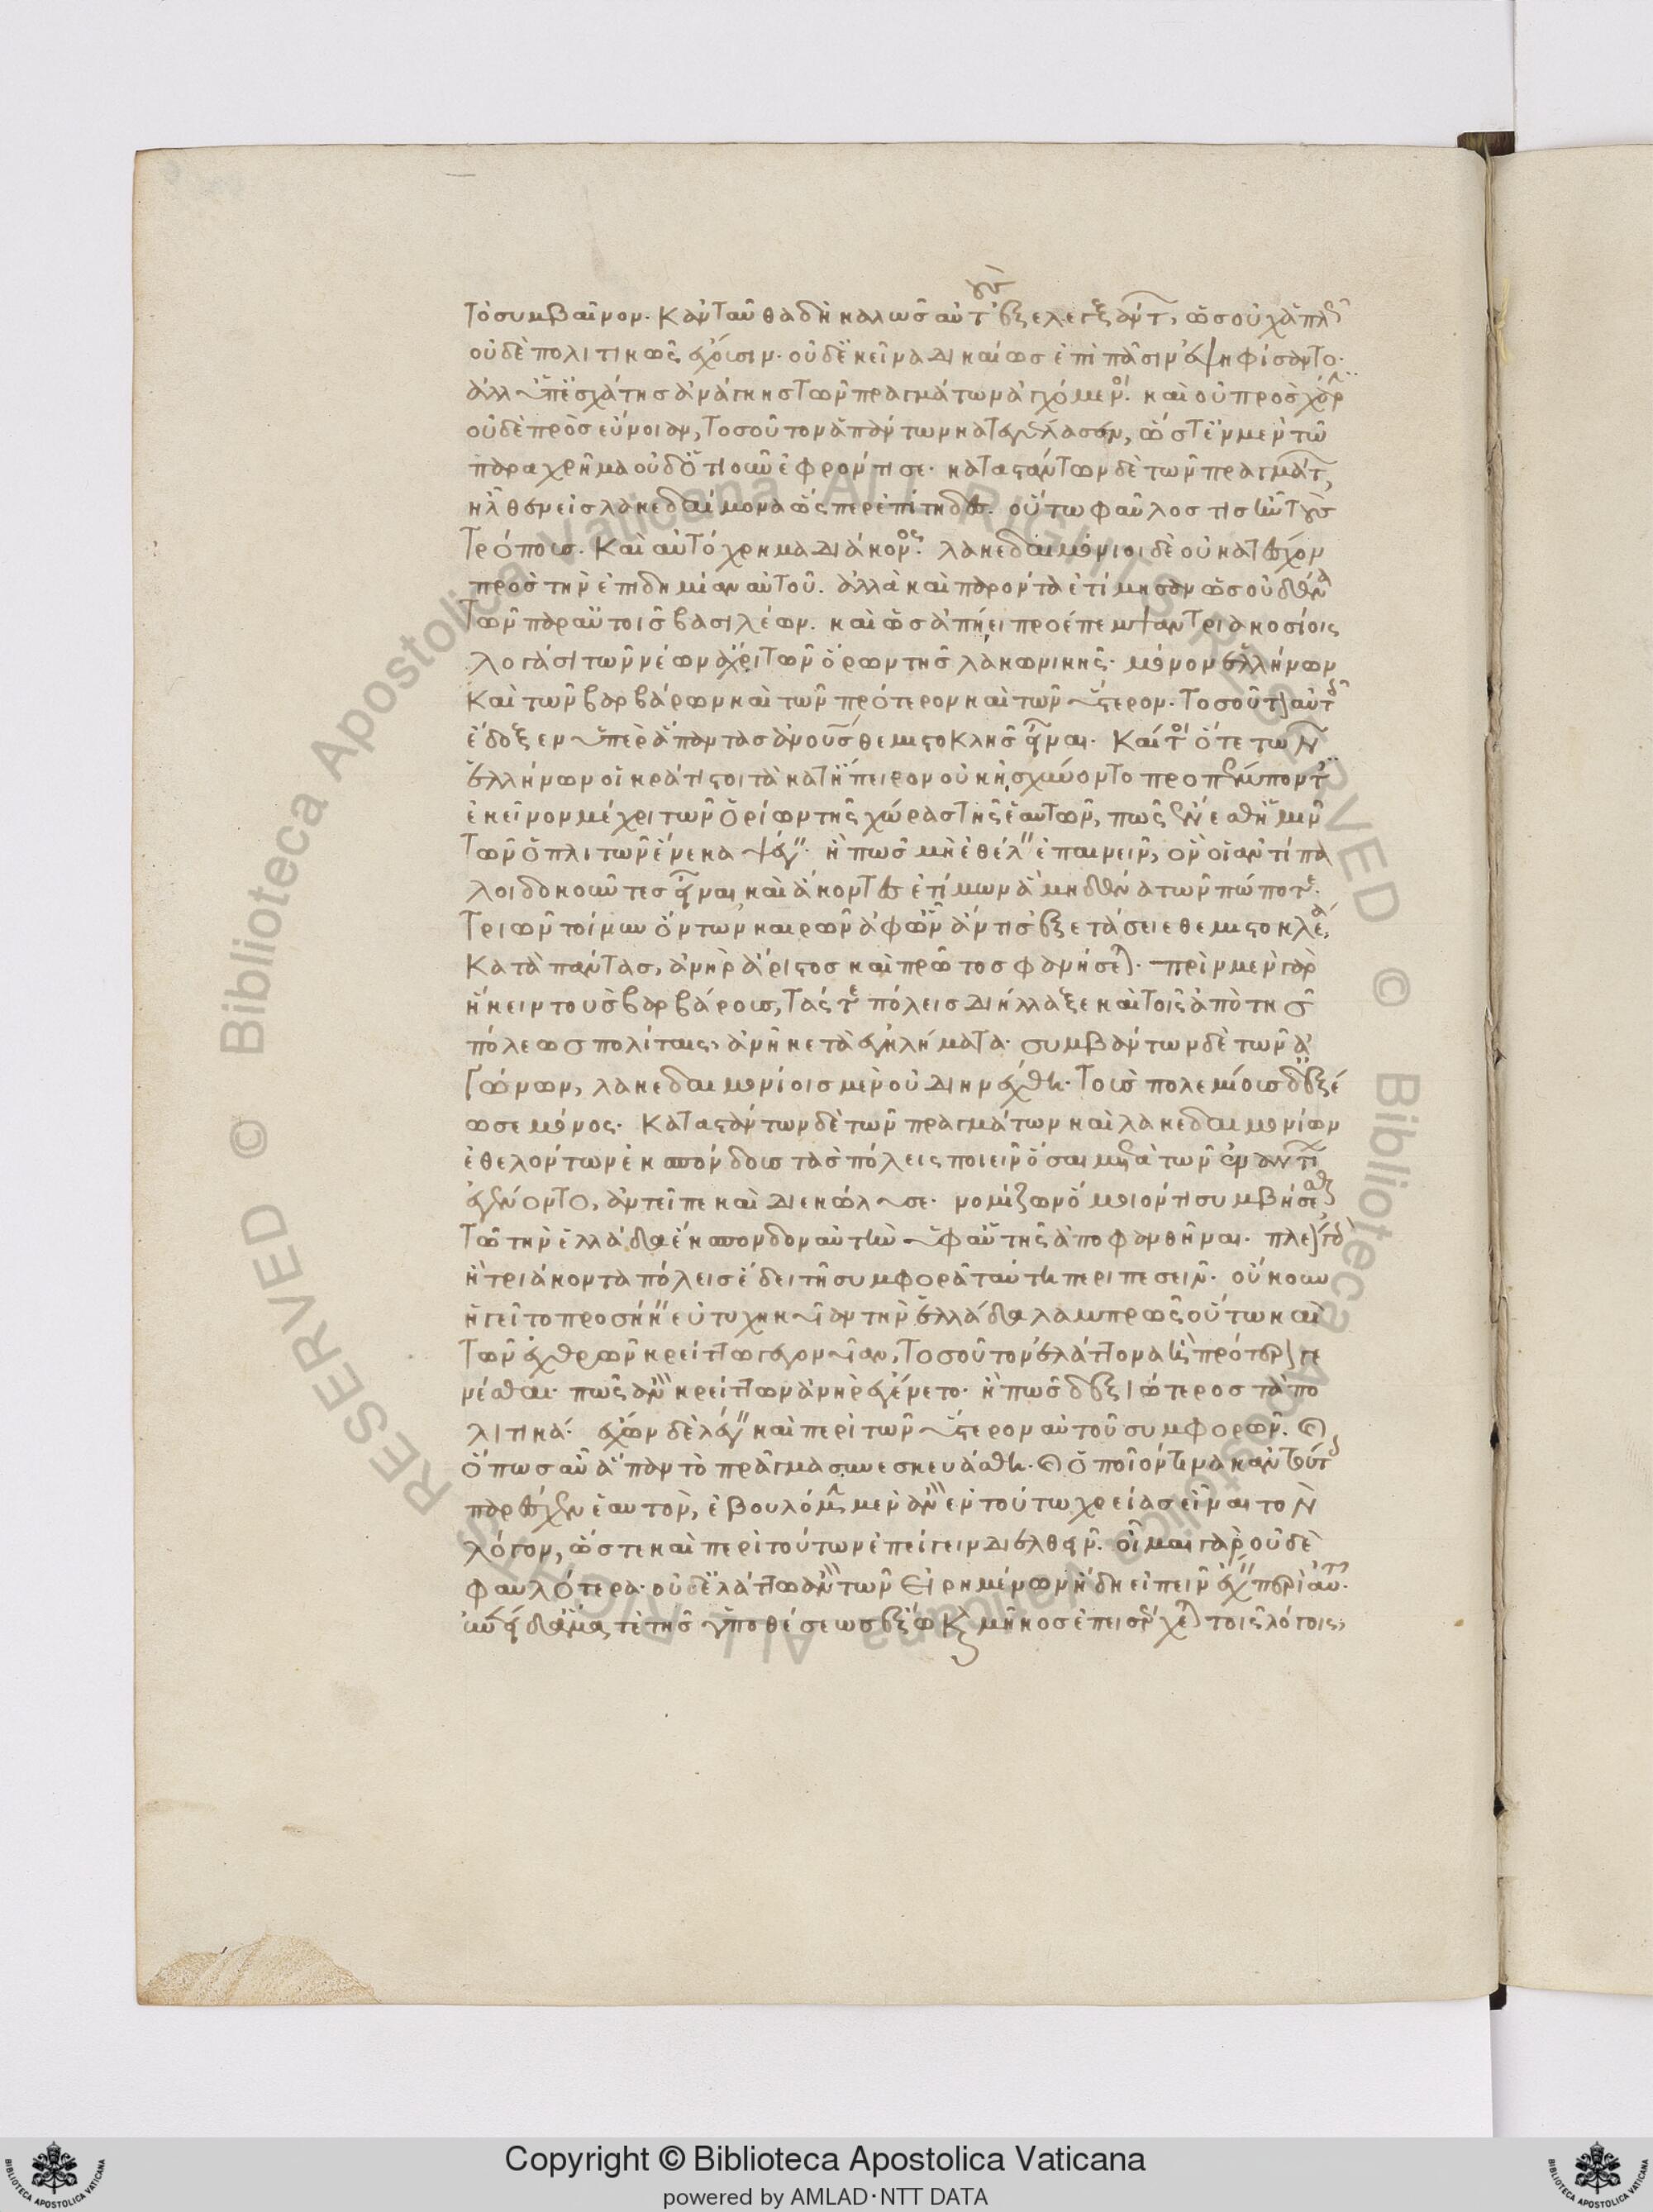 τὸ συμβαῖνον. κἀνταῦθα δὴ καλῶς αὐτ ἐξελεγξαντ, ὡς οὐχ ἁπλ
οὐδὲ πολιτικῶς ἔχουσιν. οὐδ' ἐκεῖνα δικαίως ἐπὶ πᾶσιν ἐψηφίσαντο.
ἀλλ' ὑπ' ἐσχάτης ἀνάγκης τῶν πραγμάτων ἀγχόμενοι. καὶ οὐ πρὸς χάρ
οὐδὲ πρὸς εὔνοιαν, τοσοῦτον ἁπάντων κατεγέλασεν, ὥστ' ἐν μὲν τῶ
παραχρῆμα οὐδ' ὁτιοῦν ἐφρόντισε. καταστάντων δὲ τῶν πραγμάτ,
ἦλθεν εἰς λακεδαίμονα ὥσπερ ἐπίτηδες. οὕτω φαῦλος τις ἦν τοὺς
τρόπους. καὶ αὐτόχρημα διάκονος. λακεδαιμόνιοι δὲ οὐ κατέσχον
πρὸς τὴν ἐπιδημίαν αὐτοῦ. ἀλλὰ καὶ παρόντα ἐτίμησαν ὡς οὐδένα
τῶν παρ' αὑτοῖς βασιλέων. καὶ ὡς ἀπήει προέπεμψαν τριακοσίοις
λογάσι τῶν νέων ἄχρι τῶν ὅρων τῆς λακωνικῆς. μόνον ἑλλήνων
καὶ τῶν βαρβάρων καὶ τῶν πρότερον καὶ τῶν ὕστερον. τοσοῦτον αὐτοῖς
ἔδοξεν ὑπὲρ ἅπαντας ἀνοὺς θεμιστοκλῆς εἶναι. καίτοι ὅτε τῶν
ἑλλήνων οἱ κράτιστοι τὰ κατ' ἤπειρον οὐκ ᾐσχύνοντο προπέμποντ
ἐκεῖνον μέχρι τῶν ὁρίων τῆς χώρας τῆς ἑαυτῶν, πῶς ἔνεσθ' ἡμῖν
τῶν ὁπλιτῶν ἕνεκα ψέγ. ἢ πῶς μὴ ἐθέλ ἐπαινεῖν, ὃν οἱ ἀντίπα
λοι δοκοῦντες εἶναι, καὶ ἄκοντες ἐτίμων ἃ μηδένα τῶν πώποτε.
τριῶν τοίνυν ὄντων καιρῶν ἀφ' ὧν ἄν τις ἐξετάσειε θεμιστοκλέα,
κατὰ πάντας, ἀνὴρ ἄριστος καὶ πρῶτος φανήσεται. πρὶν μὲν γὰρ
ἥκειν τοὺς βαρβάρους, τάς τε πόλεις διήλλαξε καὶ τοῖς ἀπὸ τῆς
πόλεως πολίταις, ἀνῆκε τὰ ἐγκλήματα. συμβάντων δὲ τῶν ἀ
γώνων, λακεδαιμονίοις μὲν οὐ διηνέχθη. τοὺς πολεμίους δ' ἐξέ
ωσε μόνος. καταστάντων δὲ τῶν πραγμάτων καὶ λακεδαιμονίων
ἐθελόντων ἐκσπόνδους τὰς πόλεις ποιεῖν ὅσαι μετὰ τῶν ἐναντί
ἐγένοντο, ἀντεῖπε καὶ διεκώλυσε. νομίζων ὅμοιόν τι συμβήσεσθαι
τῶ τὴν ἑλλάδα ἔκσπονδον αὐτὴν ὑφ' αὑτῆς ἀποφανθῆναι. πλεῖον
ἢ τριάκοντα πόλεις ἔδει τῆ συμφορᾶ ταύτη περιπεσεῖν. οὔκουν
ἡγεῖτο προσήκειν εὐτυχηκυῖαν τὴν ἑλλάδα λαμπρῶς οὕτω καὶ
τῶν ἐχθρῶν κρείττω γεγονυῖαν, τοσοῦτον ἐλάττονα ἢ πρότερον γε
νέσθαι. πῶς ἂν κρείττων ἀνὴρ ἐγένετο. ἢ πῶς δεξιώτερος τὰ πο
λιτικά. ἔχων δὲ λέγειν καὶ περὶ τῶν ὕστερον αὐτοῦ συμφορῶν. καὶ
ὅπως αὖ ἅπαν τὸ πρᾶγμα συνεσκευάσθη. καὶ ὁποῖόν τινα κἀν τούτοις
παρέσχεν ἑαυτὸν, ἐβουλόμην μὲν ἂν ἐν τούτω χρείας εἶναι τὸν
λόγον, ὥστε καὶ περὶ τούτων ἐπείγειν διελθεῖν. οἶμαι γὰρ οὐδὲ
φαυλότερα οὐδ' ἐλάττω ἂν τῶν εἰρημένων ἤδη εἰπεῖν ἔχειν περὶ αὐτ.
ἐπειδὴ δ' ἅμα τε τῆς ὑποθέσεως ἔξω καὶ μῆκος ἐπεισέρχεται τοῖς λόγοις,